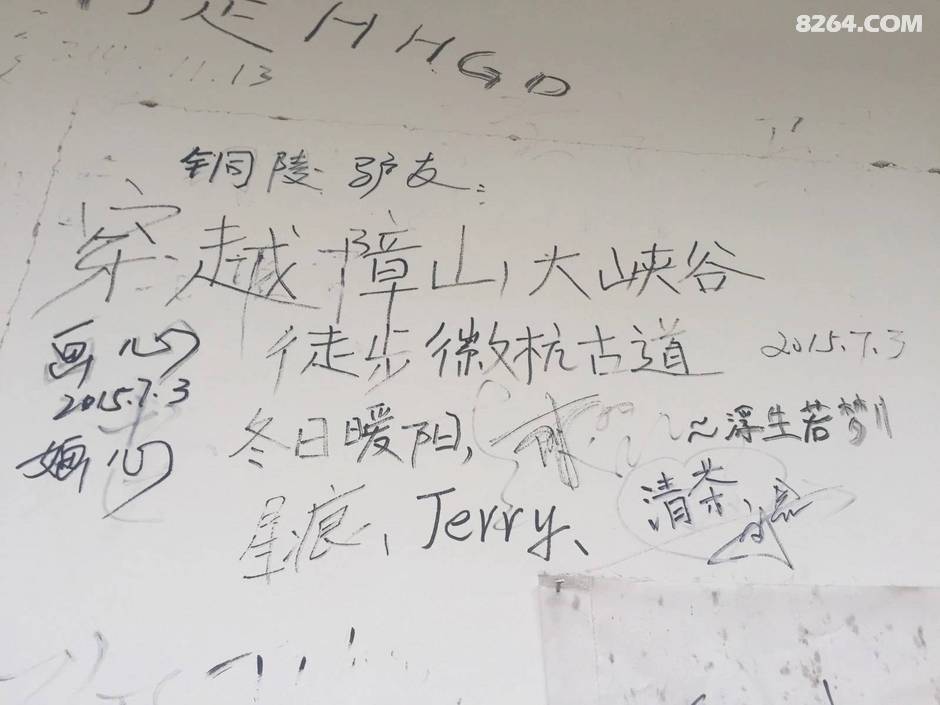 8264.COM
HHGD
11.13
铜陵驴友:
穿越障山大峡谷
徒步徽杭古道 2015.7.3
画心
2015.7.3
婳心
冬日暖阳,
~浮生若梦
星痕、Jerry、清茶、